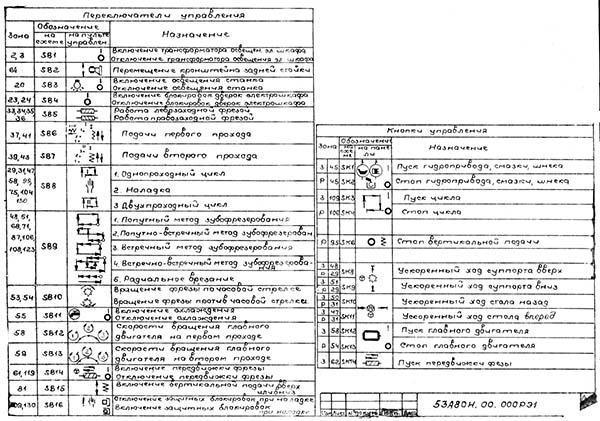 Переключатели управления
Зона
Обозначение
на схеме
на пульте управлен.
Назначение
2,3 SB1 Включение трансформатора освещен. эл. шкафа
Отключение трансформатора освещения эл. шкафа
64 SB2 Перемещение кронштейна задней стойки
20 SB3 Включение освещения станка
Отключение освещения станка
23,24 SB4 Включение блокировок дверок электрошкафа
Отключение блокировок дверок электрошкафа
33,34,35 SB5 Работа левозаходной фрезой
36 Работа правозаходной фрезой
37,41 SB6 Подачи первого прохода
39,43 SB7 Подачи второго прохода
SB8 1. Однопроходный цикл
2. Наладка
3. Двухпроходный цикл
SB9 1. Попутный метод зубофрезерования
2. Попутно-встречный метод зубофрезерован.
3. Встречный метод зубофрезерования
4. Встречно-встречный метод зубофрезерования
5. Радиальное врезание
53,54 SB10 Вращение фрезы по часовой стрелке
Вращение фрезы против часовой стрелки
55 SB11 Включение охлаждения
Отключение охлаждения
58 SB12 Скорости вращения главного
двигателя на первом проходе
59 SB13 Скорости вращения главного
двигателя на втором проходе
61,119 SB14 Включение передвижки фрезы
Отключение передвижки фрезы
81 SB15 Включение вертикальной подачи вверх
или вниз
SB16 Отключение защитных блокировок при наладке
Включение защитных блокировок
при наладке
Кнопки управления
Зона
Обозначение
на схеме
на панели
Назначение
З 45 SK1 Пуск гидропривода, смазки, шнека
Р 45 SK2 Стоп гидропривода, смазки, шнека
З 109 SK3 Пуск цикла
Р 106 SK4 Стоп цикла
Р 95 SK6 Стоп вертикальной подачи
З 48 SK8 Ускоренный ход суппорта вверх
Р 29
З 51 SK9 Ускоренный ход суппорта вниз
Р 29
З 50 SK10 Ускоренный ход стола назад
Р 31
З 47 SK11 Ускоренный ход стола вперед
Р 31
З 58 SK12 Пуск главного двигателя
Р 54 SK13 Стоп главного двигателя
З 62 SK14 Пуск передвижки фрезы
53А80Н. 00. 000РЭ1